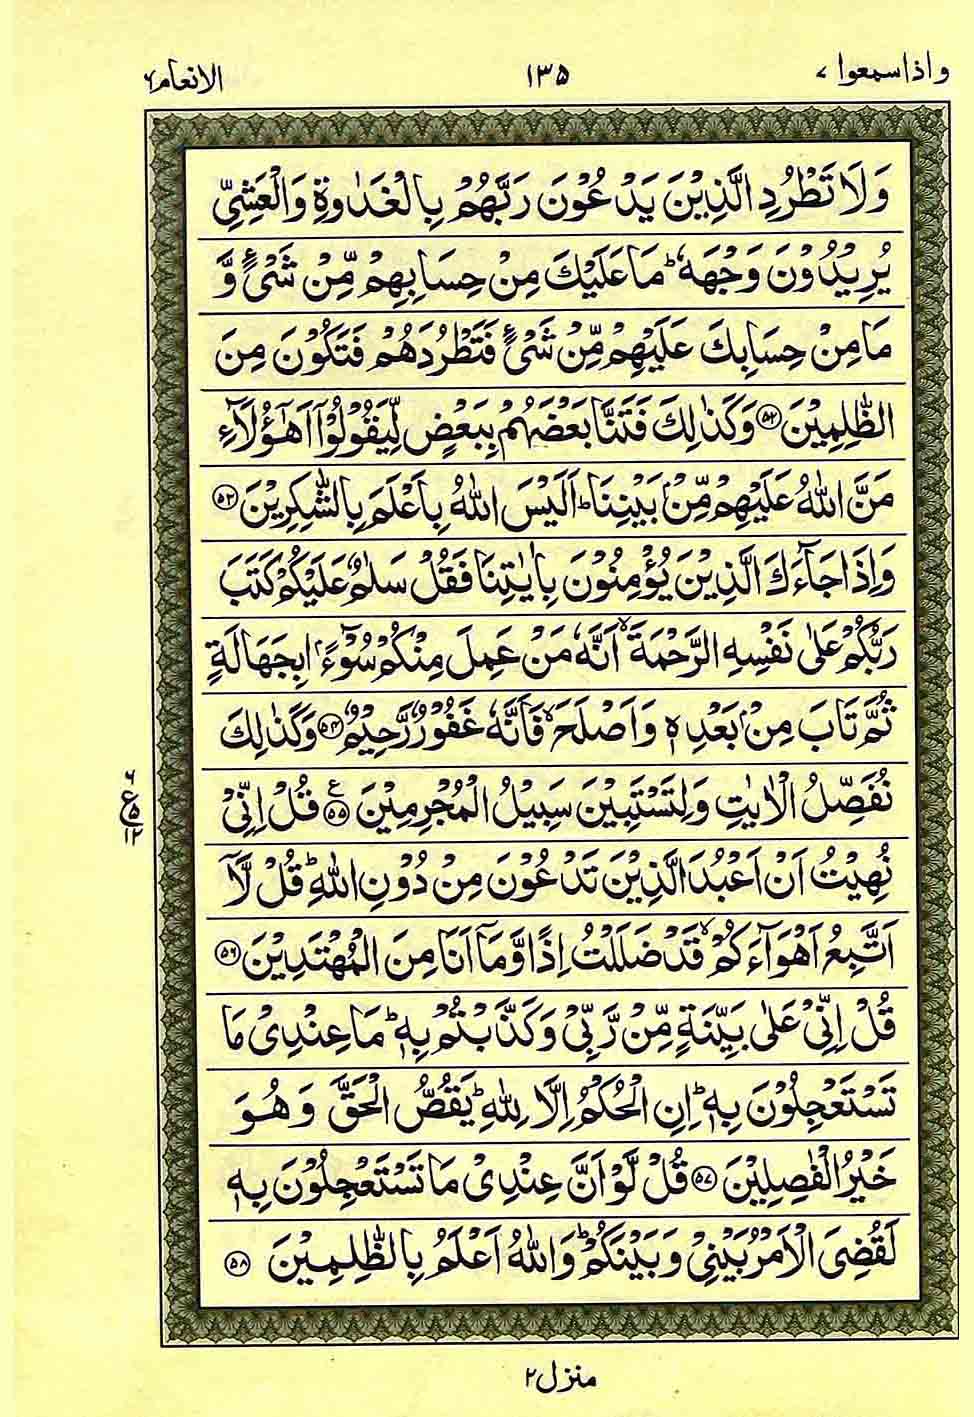 واذاسمعوا ٧
١٣٥
الانعام ٦
وَلَا تَطْرُدِ الَّذِيْنَ يَدْعُوْنَ رَبَّهُمْ بِالْغَدٰوةِ وَالْعَشِيِّ
يُرِيْدُوْنَ وَجْهَهٗ ؕ مَا عَلَيْكَ مِنْ حِسَابِهِمْ مِّنْ شَيْءٍ وَّ
مَا مِنْ حِسَابِكَ عَلَيْهِمْ مِّنْ شَيْءٍ فَتَطْرُدَهُمْ فَتَكُوْنَ مِنَ
الظّٰلِمِيْنَ ﴿۵۲﴾ وَكَذٰلِكَ فَتَنَّا بَعْضَهُمْ بِبَعْضٍ لِّيَقُوْلُوْٓا اَهٰٓؤُلَآءِ
مَنَّ اللّٰهُ عَلَيْهِمْ مِّنْۢ بَيْنِنَا ؕ اَلَيْسَ اللّٰهُ بِاَعْلَمَ بِالشّٰكِرِيْنَ ﴿۵۳﴾
وَاِذَا جَآءَكَ الَّذِيْنَ يُؤْمِنُوْنَ بِاٰيٰتِنَا فَقُلْ سَلٰمٌ عَلَيْكُمْ كَتَبَ
رَبُّكُمْ عَلٰى نَفْسِهِ الرَّحْمَةَ ۙ اَنَّهٗ مَنْ عَمِلَ مِنْكُمْ سُوْٓءًۢا بِجَهَالَةٍ
ثُمَّ تَابَ مِنْۢ بَعْدِهٖ وَاَصْلَحَ ۙ فَاَنَّهٗ غَفُوْرٌ رَّحِيْمٌ ﴿۵۴﴾ وَكَذٰلِكَ
نُفَصِّلُ الْاٰيٰتِ وَلِتَسْتَبِيْنَ سَبِيْلُ الْمُجْرِمِيْنَ ﴿۵۵﴾ ع قُلْ اِنِّيْ
نُهِيْتُ اَنْ اَعْبُدَ الَّذِيْنَ تَدْعُوْنَ مِنْ دُوْنِ اللّٰهِ ؕ قُلْ لَّآ
اَتَّبِعُ اَهْوَآءَكُمْ ۙ قَدْ ضَلَلْتُ اِذًا وَّمَآ اَنَا مِنَ الْمُهْتَدِيْنَ ﴿۵۶﴾
قُلْ اِنِّيْ عَلٰى بَيِّنَةٍ مِّنْ رَّبِّيْ وَكَذَّبْتُمْ بِهٖ ؕ مَا عِنْدِيْ مَا
تَسْتَعْجِلُوْنَ بِهٖ ؕ اِنِ الْحُكْمُ اِلَّا لِلّٰهِ ؕ يَقُصُّ الْحَقَّ وَهُوَ
خَيْرُ الْفٰصِلِيْنَ ﴿۵۷﴾ قُلْ لَّوْ اَنَّ عِنْدِيْ مَا تَسْتَعْجِلُوْنَ بِهٖ
لَقُضِيَ الْاَمْرُ بَيْنِيْ وَبَيْنَكُمْ ؕ وَاللّٰهُ اَعْلَمُ بِالظّٰلِمِيْنَ ﴿۵۸﴾
٦
ع ۵
١٢
منزل ٢